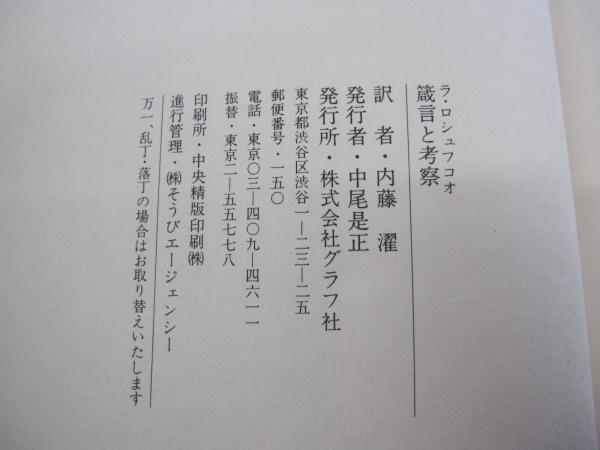 ラ・ロシュフコオ
箴言と考察
訳　者・内藤　濯
発行者・中尾是正
発行所・株式会社グラフ社
東京都渋谷区渋谷一―二三―二五
郵便番号・一五〇
電話・東京〇三―四〇九―四六一一
振替・東京二―五五七七八
印刷所・中央精版印刷㈱
進行管理・㈱そうびエージェンシー
万一、乱丁・落丁の場合はお取り替えいたします